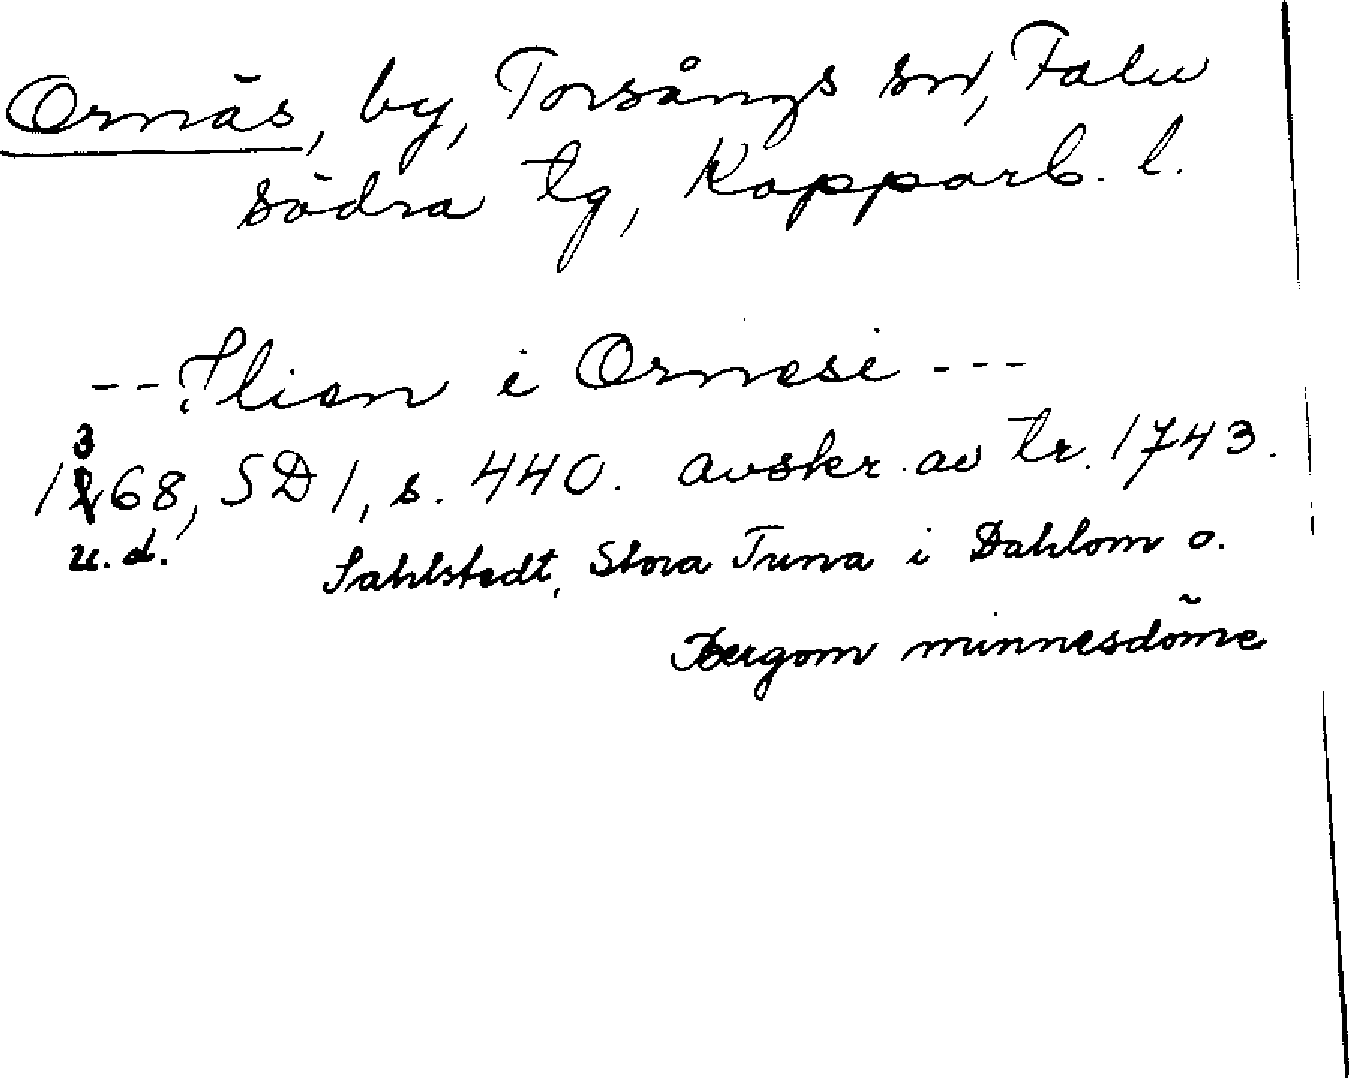 Ornäs, by, Torsångs sn, Falu
södra tg, Kopparb. l.
-- Ilian i Ornesi ---
3
1268, SD 1, s. 440. avskr. av tr. 1743.
u. d.
Sahlstedt, Stora Tuna i Dahlom o.
Bergom minnesdöme